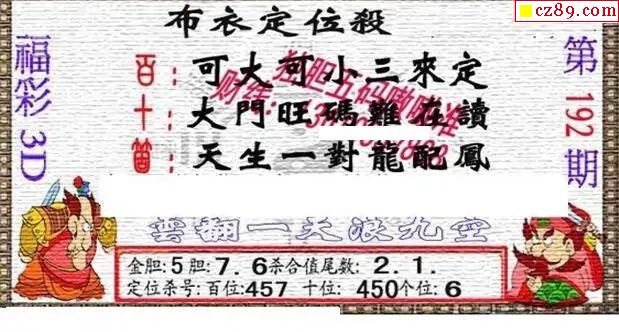 cz89.com
布衣定位殺
福彩3D
百：可大可小三來定
十：大門旺碼難在讀
個：天生一對龍配鳳
第192期
雲翻一天浪九空
金胆:5胆:7.6杀合值尾数:2.1.
定位杀号:百位:457 十位:450个位:6